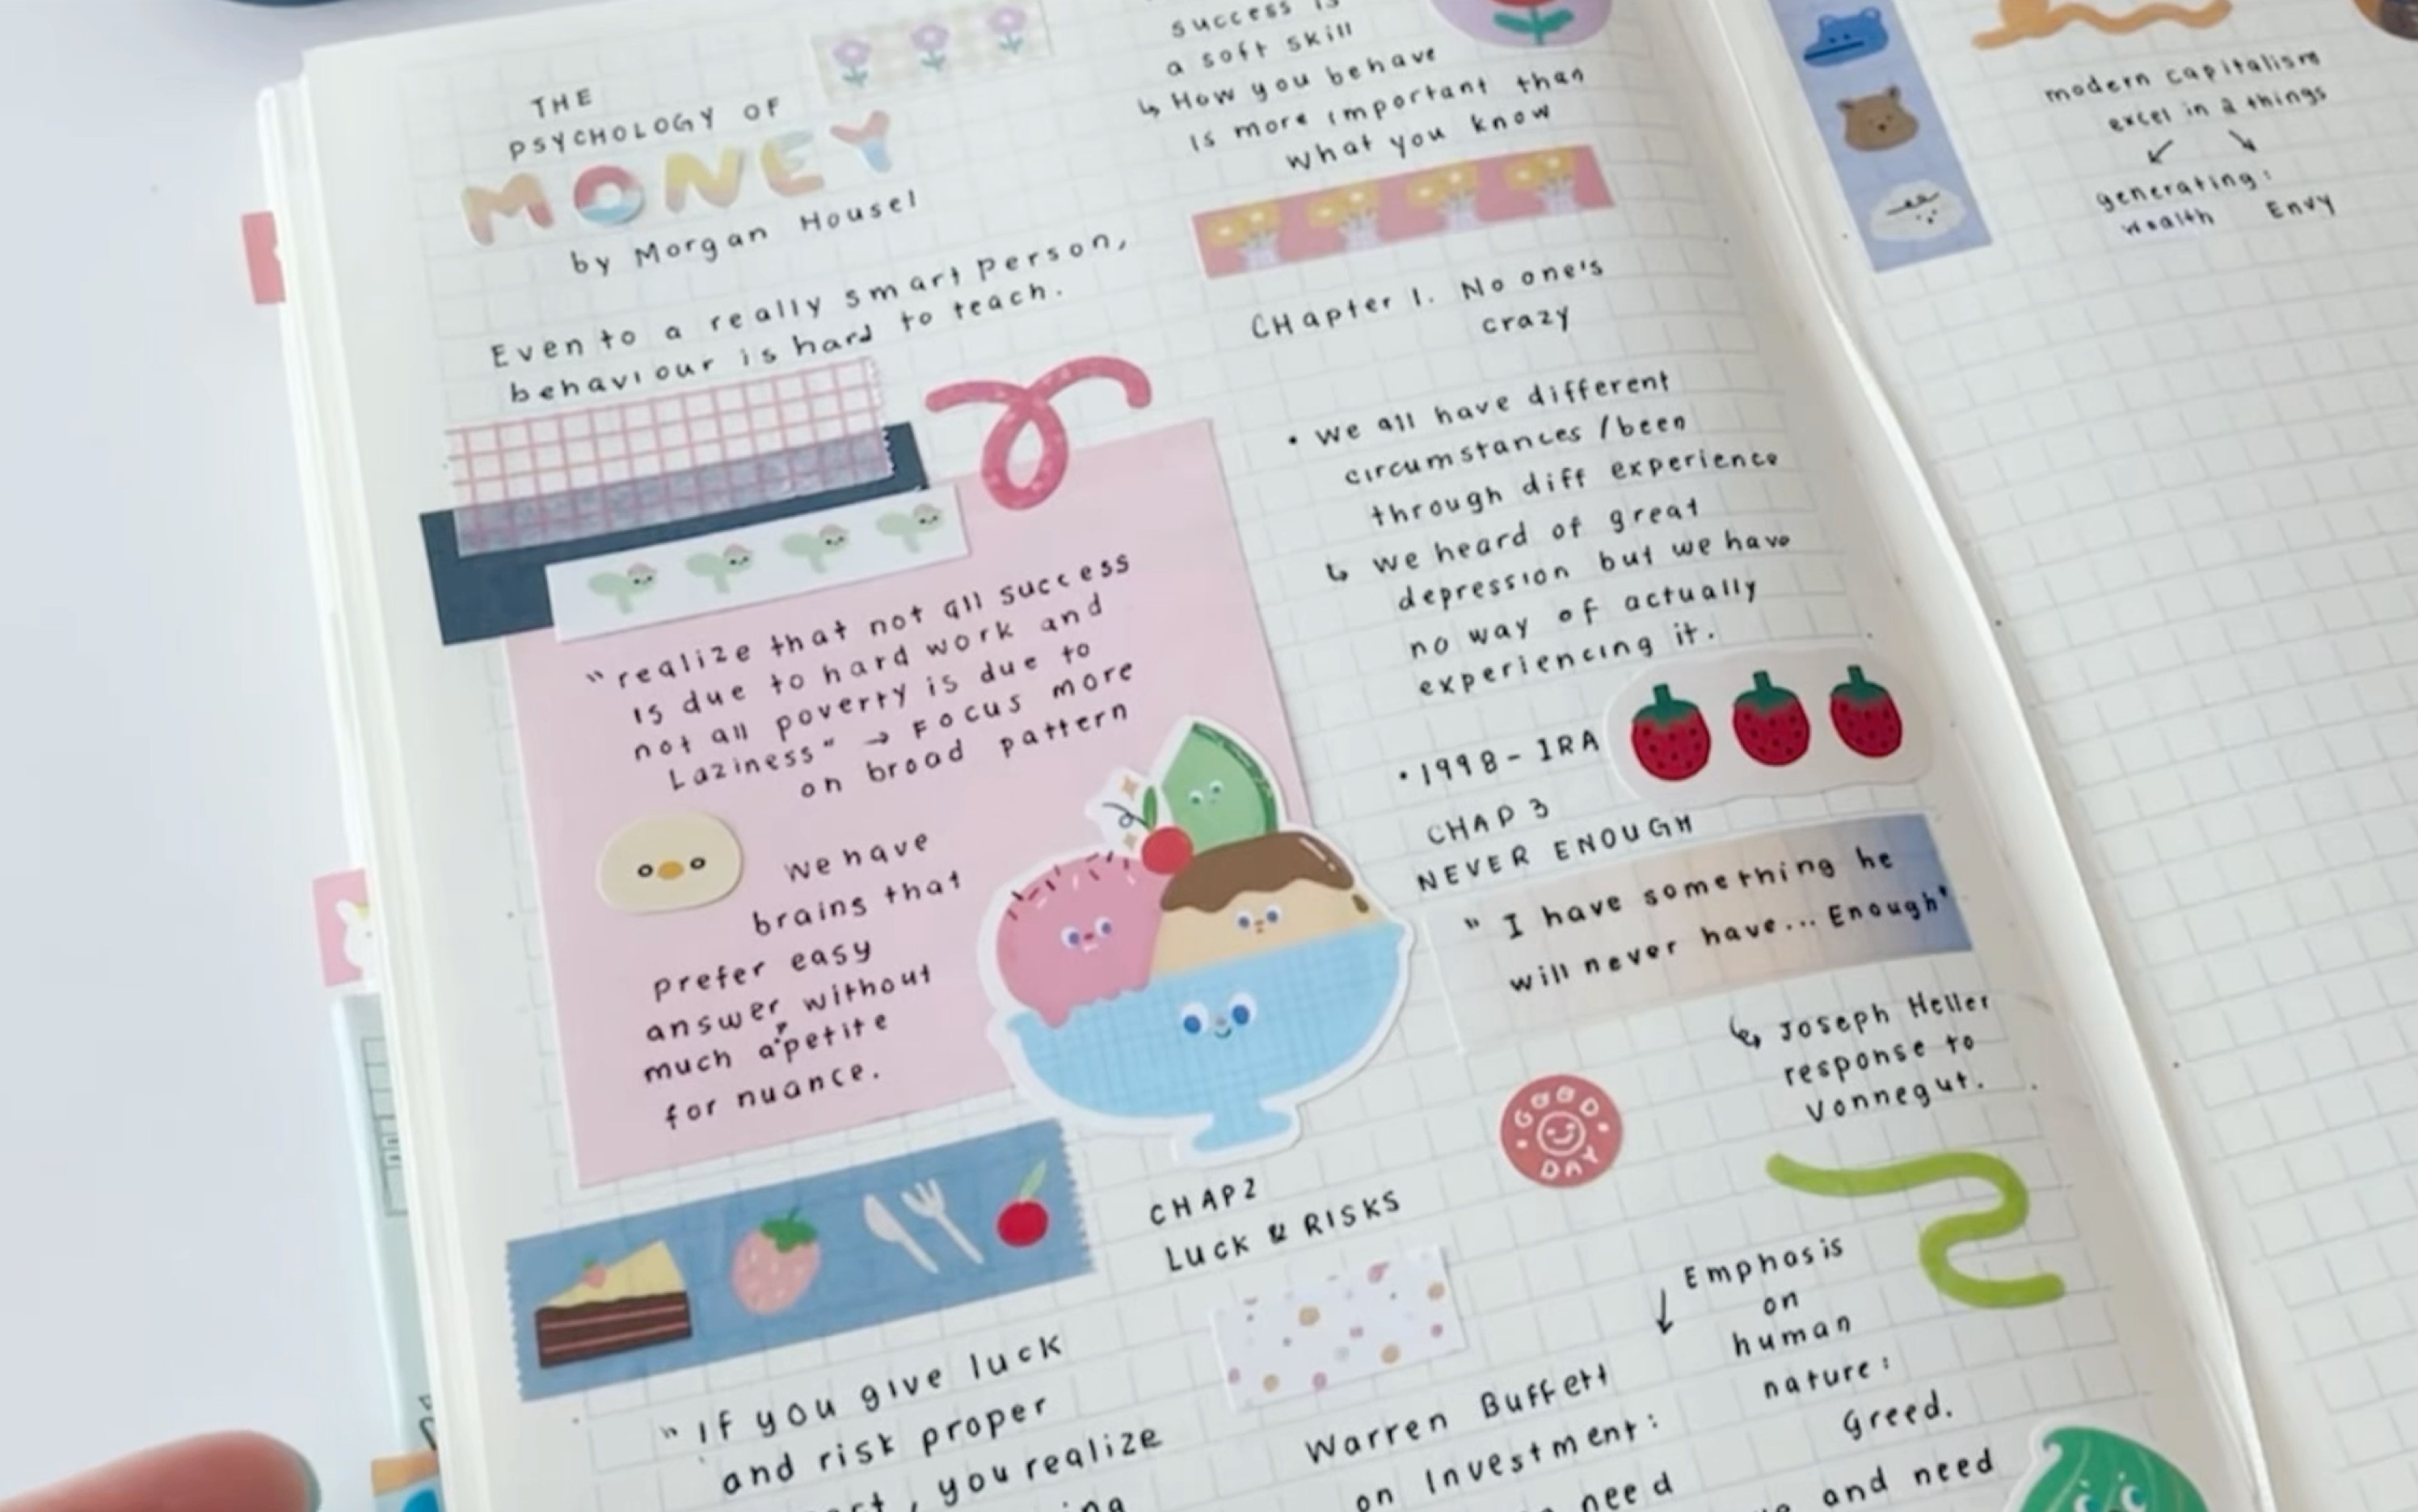 THE
PSYCHOLOGY OF
MONEY
by Morgan Housel
Even to a really smart person,
behaviour is hard to teach.
"realize that not all success
is due to hard work and
not all poverty is due to
Laziness" → Focus more
on broad pattern
We have
brains that
prefer easy
answer without
much appetite
for nuance.
CHAP2
LUCK & RISKS
"If you give luck
and risk proper
, you realize
success is
a soft skill
↳ How you behave
is more important than
what you know
CHapter 1. No one's
crazy
• we all have different
circumstances /been
through diff experience
↳ we heard of great
depression but we have
no way of actually
experiencing it.
• 1998 - IRA
CHAP 3
NEVER ENOUGH
" I have something he
will never have... Enough"
↳ Joseph Heller
response to
Vonnegut.
GOOD
DAY
Emphasis
on
human
nature:
Greed.
↓
Warren Buffett
on Investment:
need
and need
modern capitalism
excel in 2 things
↙ ↘
generating:
wealth Envy